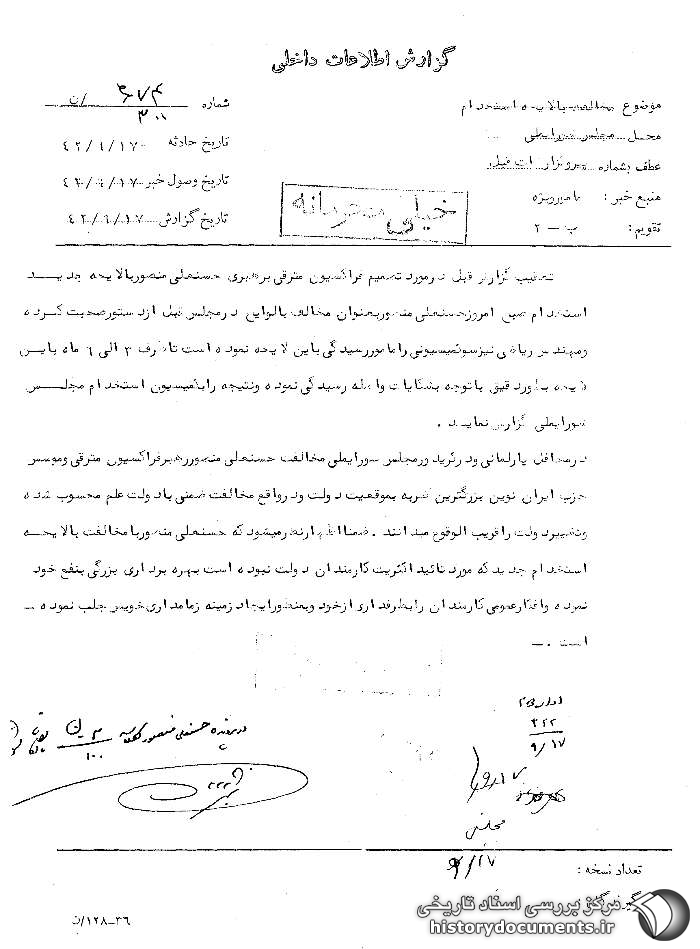 گزارش اطلاعات داخلی
موضوع مخالفت بالایحه استخدام
محل مجلس شورایملی
عطف بشماره پیروگزارشات قبلی
منبع خبر : مامورویژه
تقویم : ب - ۲
شماره /ن ۳۰۰
تاریخ حادثه ۴۲/۹/۱۷
تاریخ وصول خبر ۴۲/۹/۱۷
تاریخ گزارش ۴۲/۹/۱۷
خیلی محرمانه
تعقیب گزارش قبل درمورد تصمیم فراکسیون مترقی برهبری حسنعلی منصوربالایحه جدید
استخدام صبح امروزحسنعلی منصوربعنوان مخالف بالوایح درمجلس قبل ازدستورصحبت کرده
ومهندس ریاضی نیزسوکمیسیونی راماموررسیدگی باین لایحه نموده است تاظرف ۳ الی ۶ ماه باین
لایحه بطوردقیق باتوجه بشکایات واصله رسیدگی نموده ونتیجه رابکمیسیون استخدام مجلس
شورایملی گزارش نمایند .
درمحافل پارلمانی ودرکریدورمجلس شورایملی مخالفت حسنعلی منصوررهبرفراکسیون مترقی وموسس
حزب ایران نوین بزرگترین ضربه بموقعیت دولت ودرواقع مخالفت ضمنی بادولت علم محسوب شده
وتغییردولت راقریب الوقوع میدانند . ضمنااظهارنظرمیشودکه حسنعلی منصوربامخالفت بالایحه
استخدام جدیدکه موردتائید اکثریت کارمندان دولت نبوده است بهره برداری بزرگی بنفع خود
نموده وافکارعمومی کارمندان رابطرفداری ازخود وبمنظورایجاد زمینه زمامداری خویش جلب نموده -
است . -
درپرونده حسنعلی منصور
۱۰۰
۳۲۲
۹/۱۷
مجلس
۹/۱۷
تعداد نسخه :
۱۲۸-۳۶/ن
مرکز بررسی اسناد تاریخی
historydocuments.ir